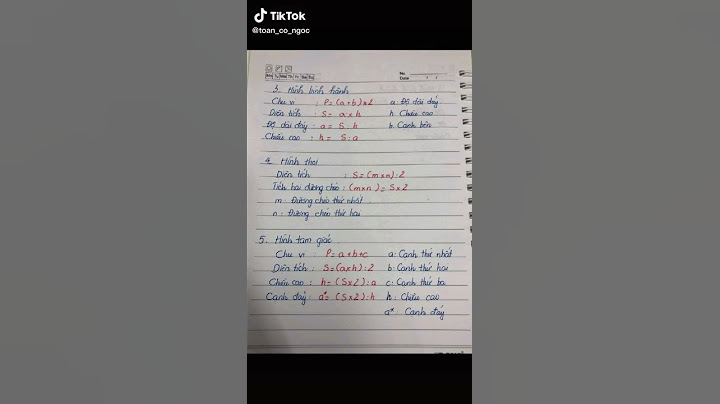 TikTok
@toan_co_ngoc
No.
Date / /
3. Hình bình hành
Chu vi : P = (a+b)x2 a: Độ dài đáy
Diện tích : S = axh h: Chiều cao
Độ dài đáy : a = S:h b: Cạnh bên
Chiều cao : h = S:a
4. Hình thoi
Diện tích : S = (mxn):2
Tích hai đường chéo : (mxn) = Sx2
m: Đường chéo thứ nhất
n: Đường chéo thứ hai
5. Hình tam giác
Chu vi : P = a+b+c a: Cạnh thứ nhất
Diện tích : S = (axh):2 b: Cạnh thứ hai
Chiều cao : h = (Sx2):a c: Cạnh thứ ba
Cạnh đáy : a* = (Sx2):h h: Chiều cao
a*: Cạnh đáy